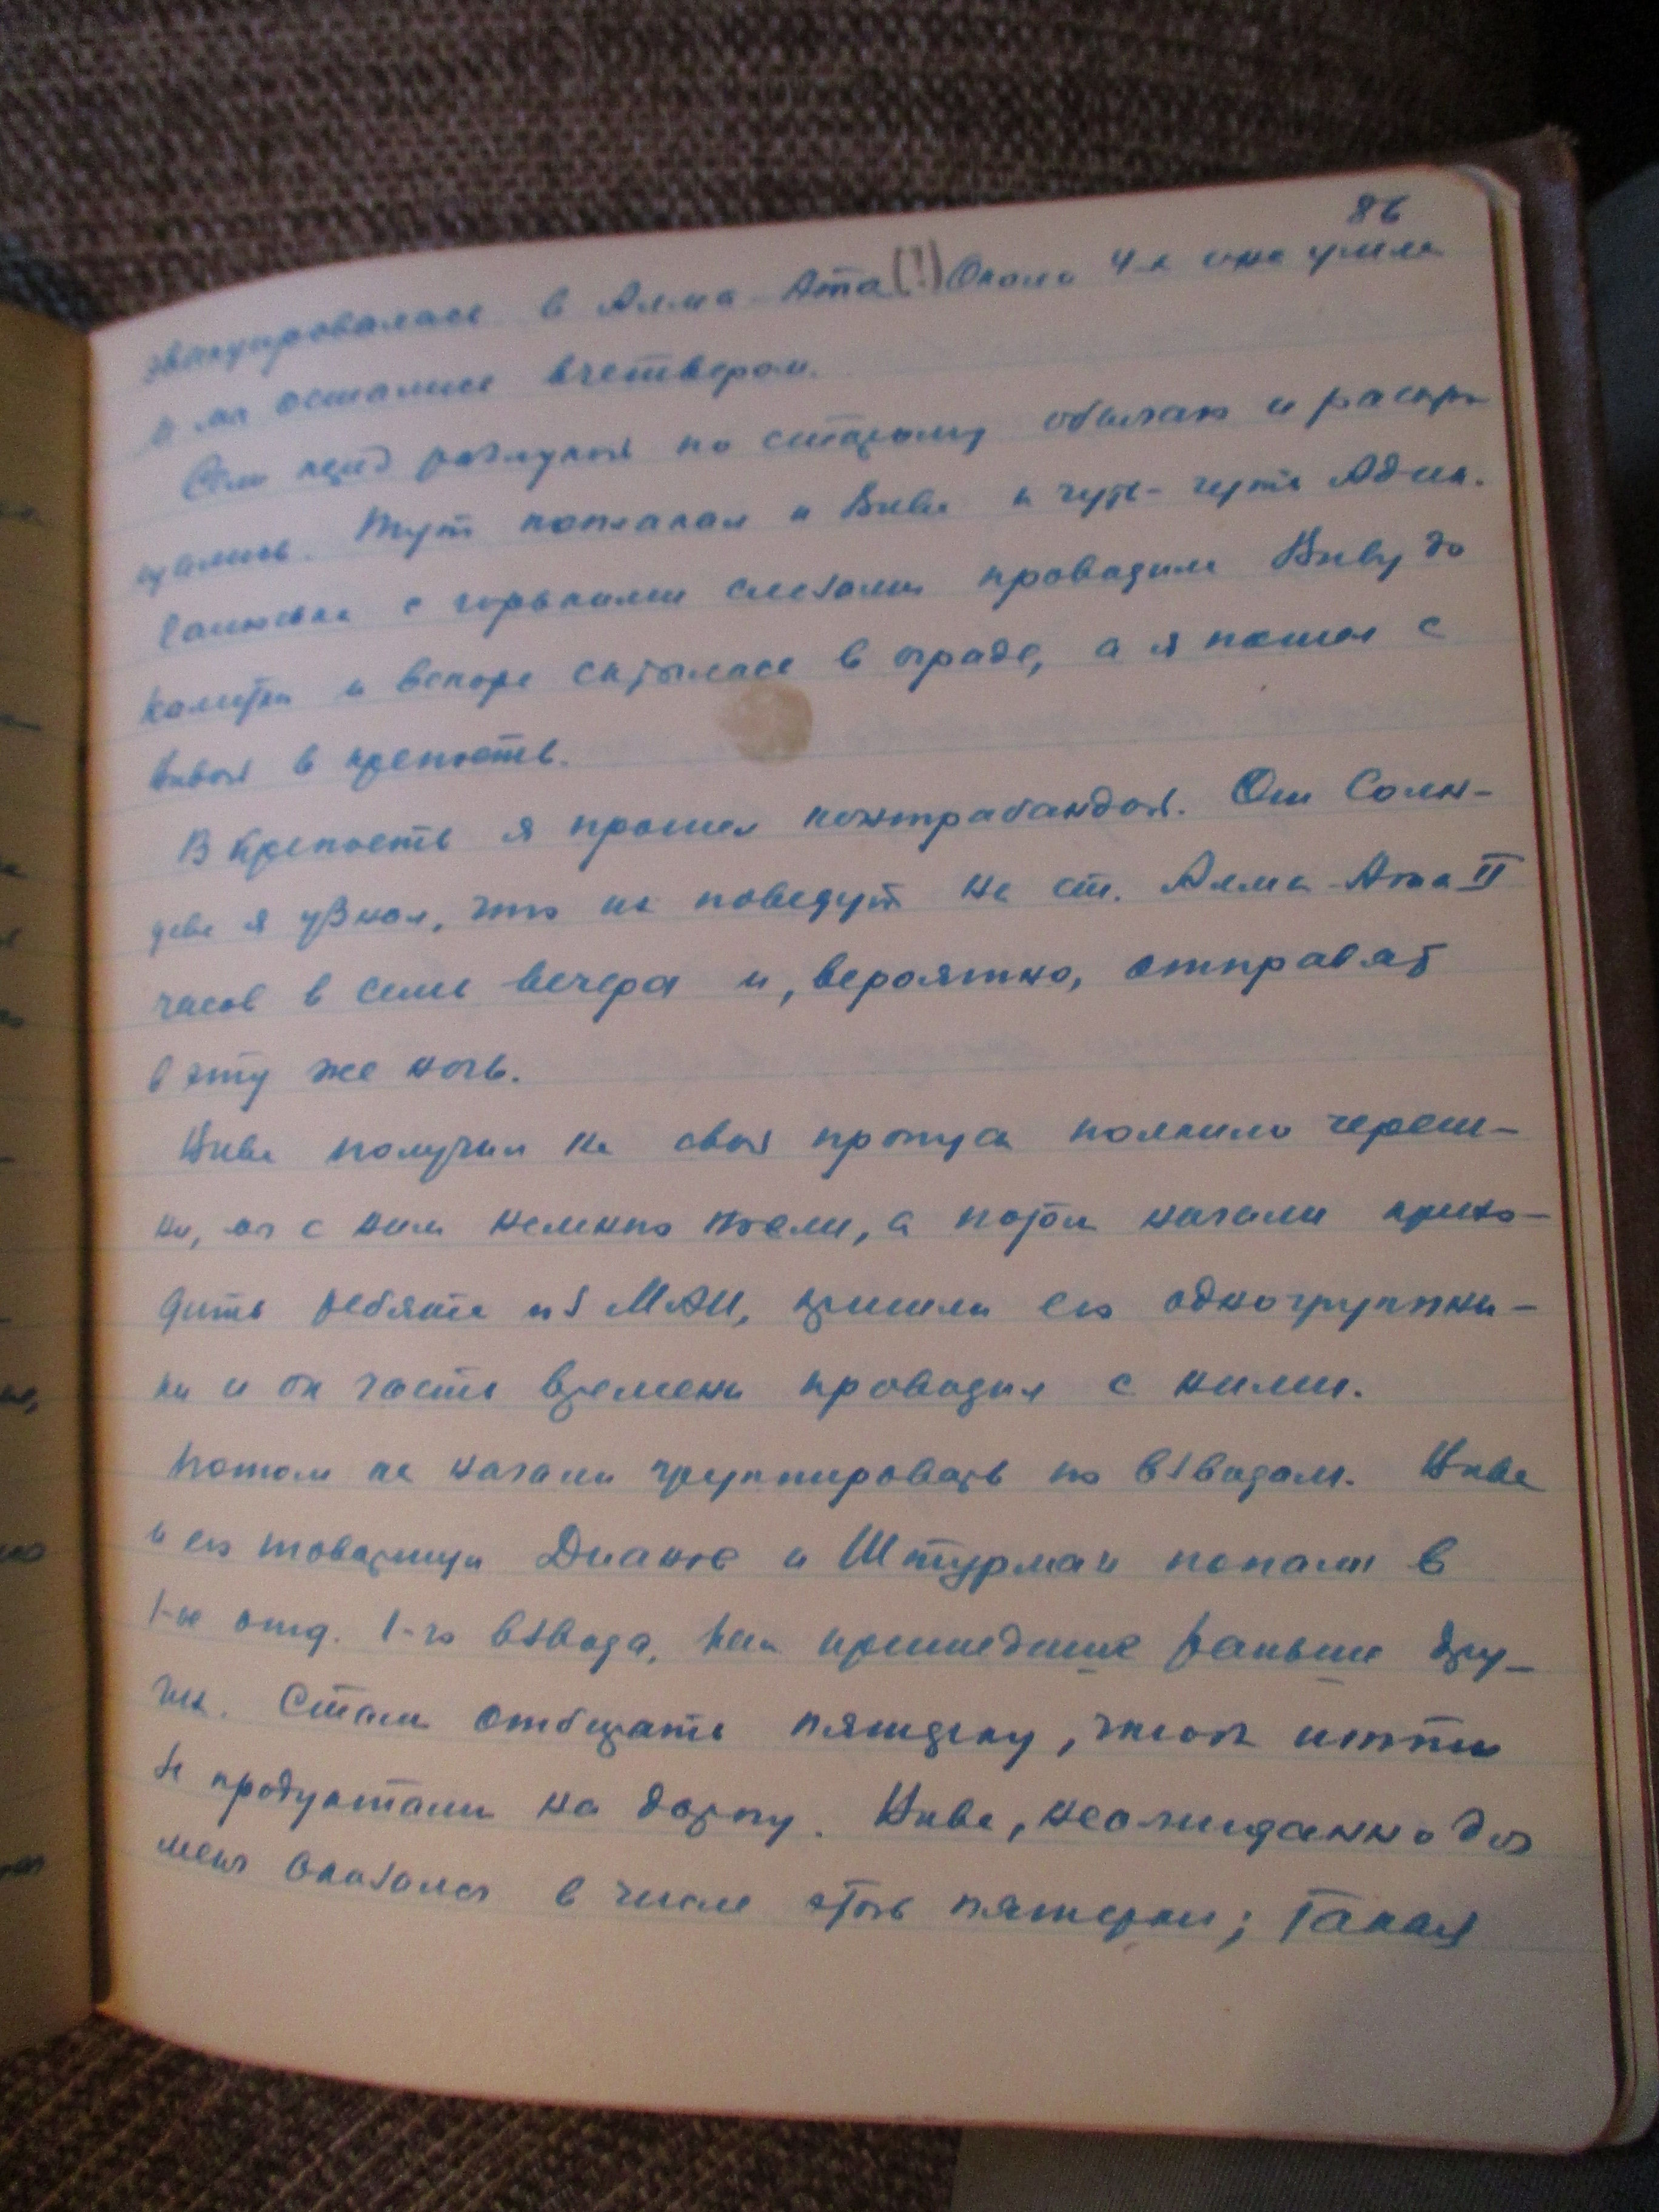 86
эвакуировалась в Алма-Ата (!) Около 4-х они ушли
и мы остались вчетвером.
Сели перед разлукой по старому обычаю и распро-
щались. Тут поплакал и Вива и чуть-чуть Адик.
с горькими слезами проводили Виву до
калитки и вскоре скрылась в ограде, а я пошел с
Вивой в крепость.
В крепость я прошел контрабандой. От Солн-
цева я узнал, что их поведут на ст. Алма-Ата II
часов в семь вечера и, вероятно, отправят
в эту же ночь.
Вива получил на свой пропуск полкило череш-
ни, мы с ним немного поели, а потом начали прихо-
дить ребята из МАИ, пришли его одногруппни-
ки и он часть времени проводил с ними.
Потом их начали группировать по взводам. Вива
и его товарищи и Штурман попали в
1-ое отд. 1-го взвода, как пришедшие раньше дру-
гих. Стали отбирать пятерку, чтобы итти
за продуктами на дорогу. Вива, неожиданно для
меня оказался в числе этой пятерки; такая